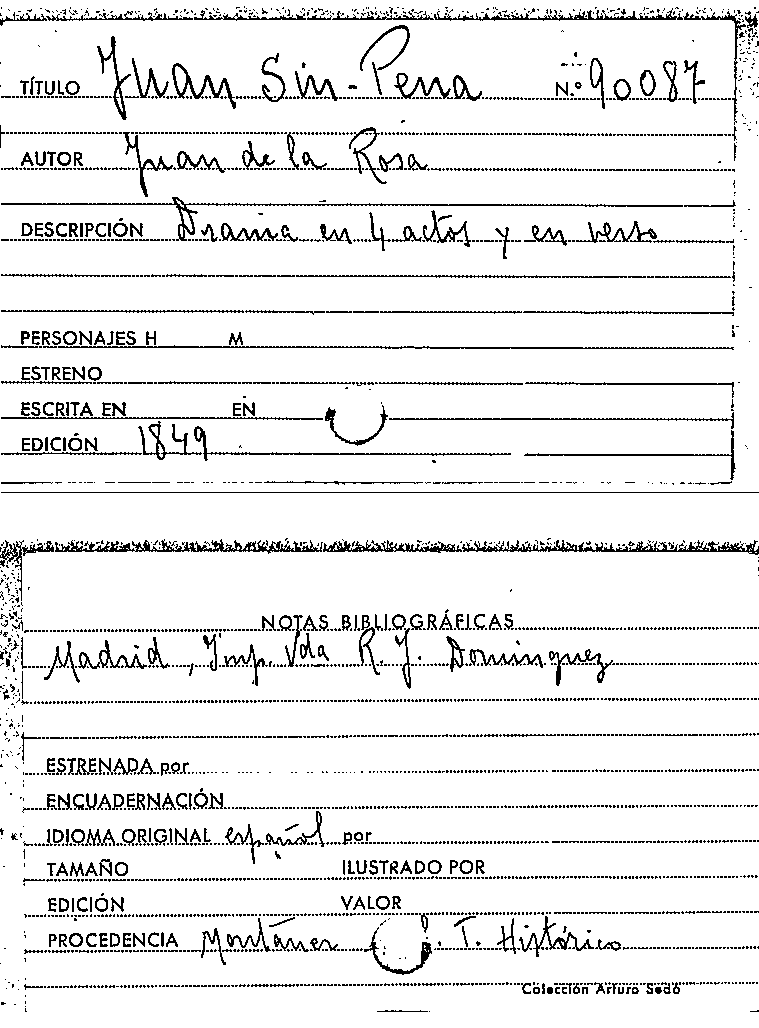 TÍTULO Juan Sin-Pena N.º 90087
AUTOR Juan de la Rosa
DESCRIPCIÓN Drama en 4 actos y en verso
PERSONAJES H M
ESTRENO
ESCRITA EN EN
EDICIÓN 1849
NOTAS BIBLIOGRÁFICAS
Madrid, Imp. Vda R. J. Dominguez
ESTRENADA por
ENCUADERNACIÓN
IDIOMA ORIGINAL español por
TAMAÑO ILUSTRADO POR
EDICIÓN VALOR
PROCEDENCIA Montaner T. Histórico
Colección Arturo Sedó